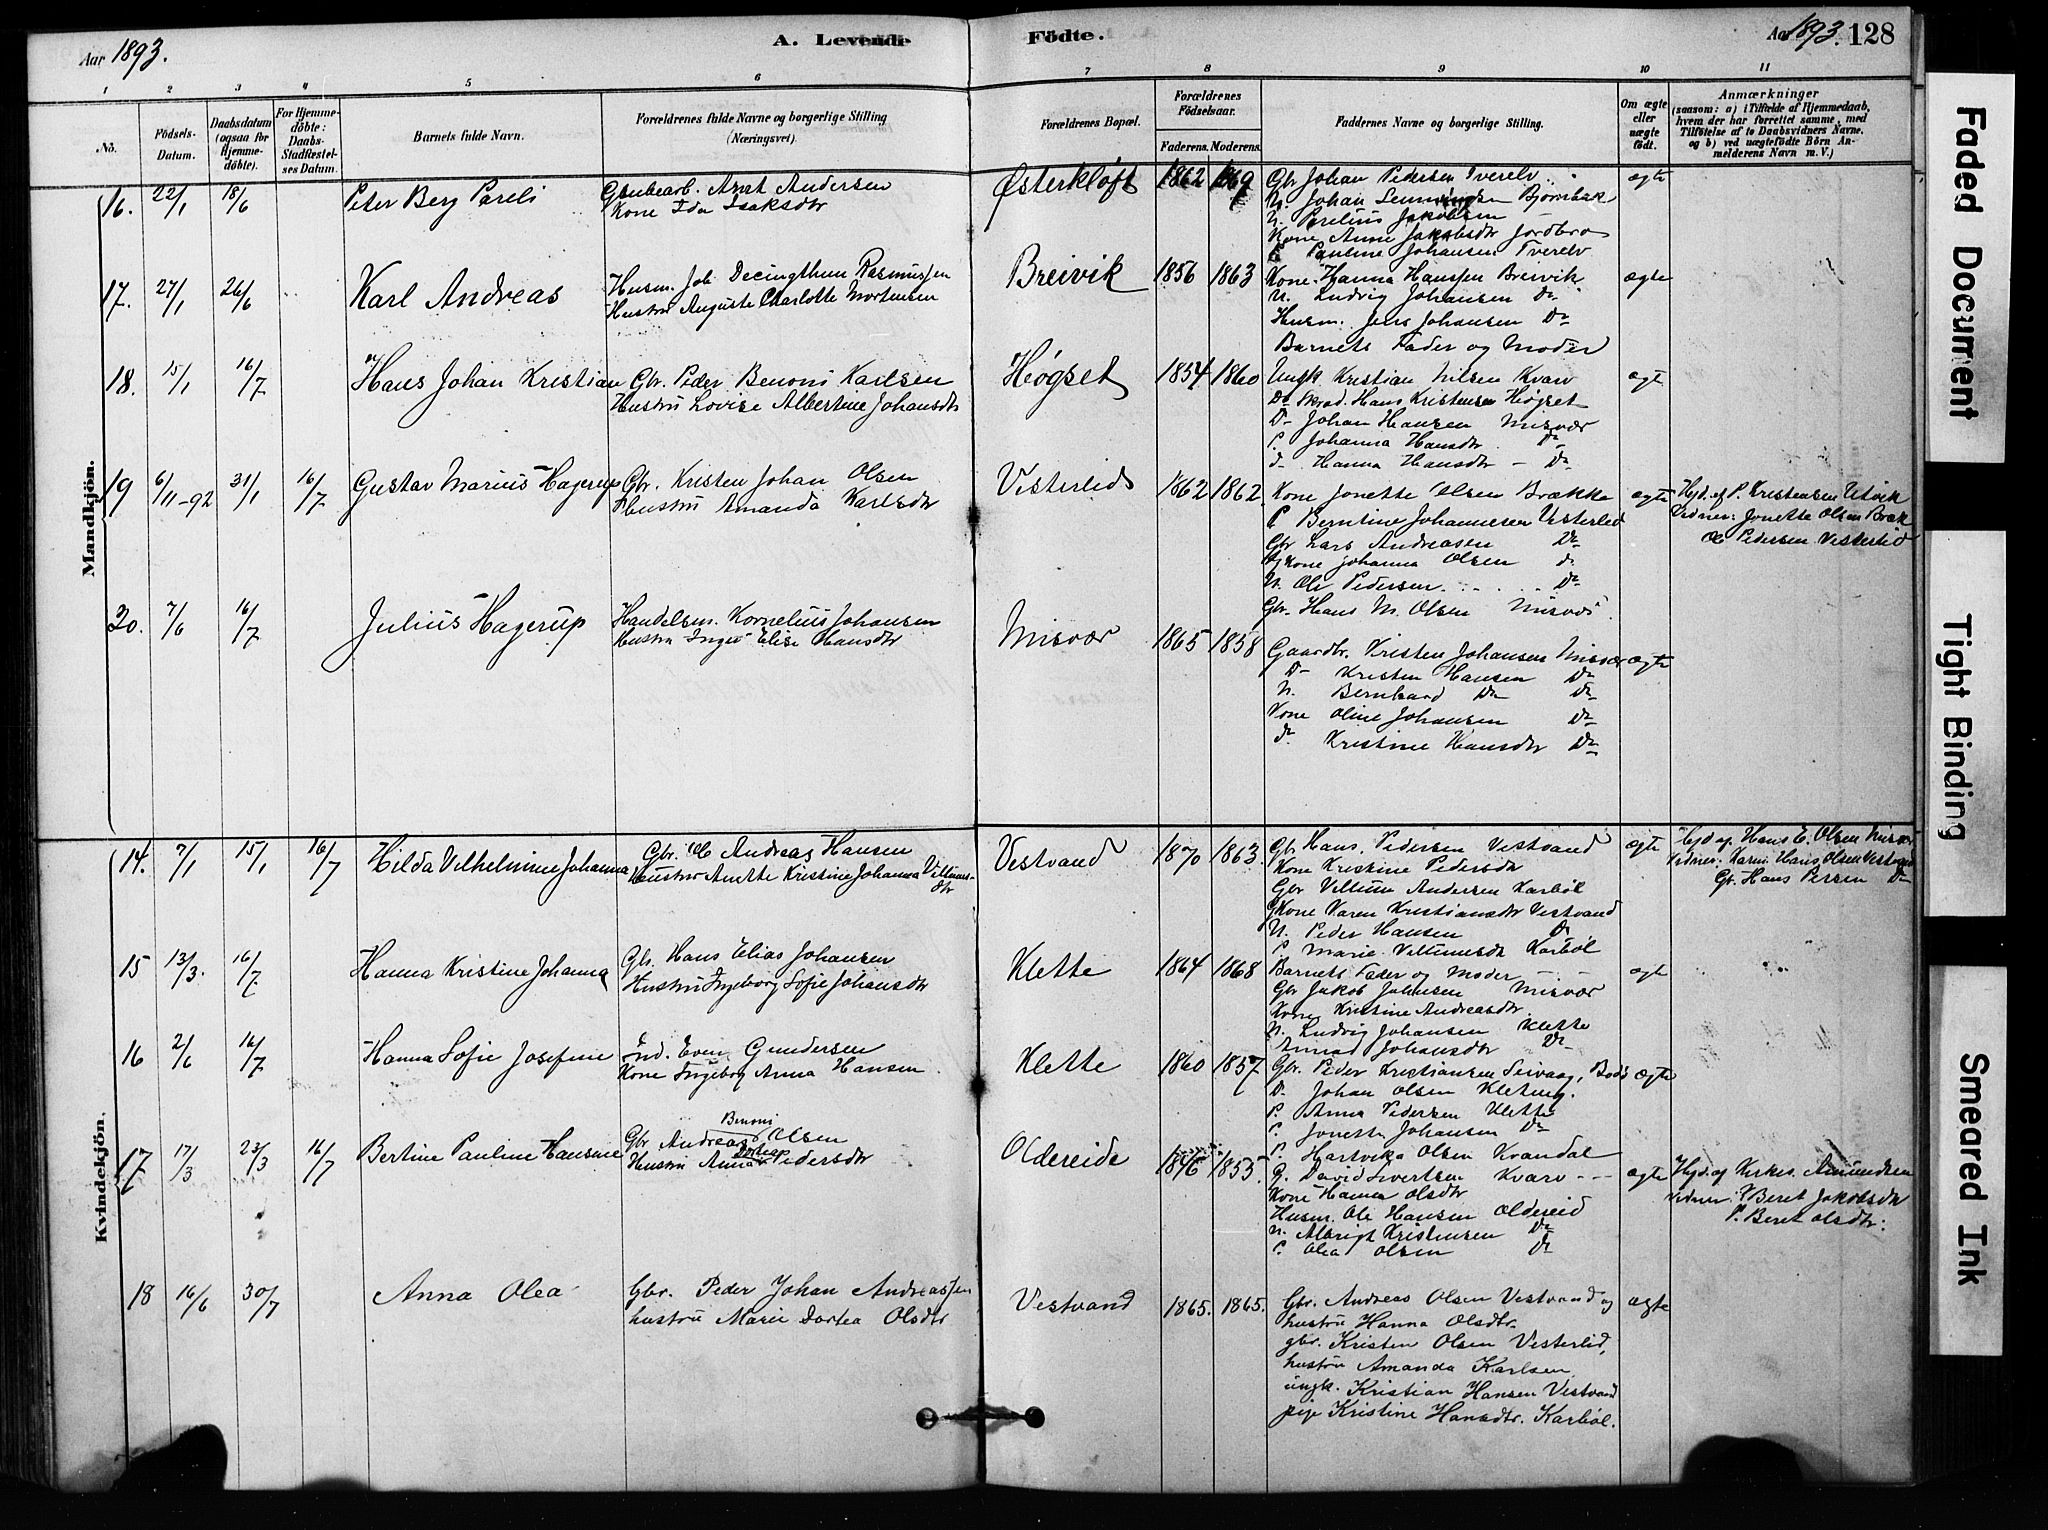 Aar 1893.
A. Levende Fødte.
Aar 1893. 128
1 2 3 4 5 6 7 8 9 10 11
No.
Födsels-Datum.
Daabsdatum (ogsaa for Hjemmedöbte).
For Hjemmedöbte: Daabs-Stadfæstelses Datum.
Barnets fulde Navn.
Forældrenes fulde Navne og borgerlige Stilling (Næringsvei).
Forældrenes Bopæl.
Forældrenes Födselsaar.
Faderens. Moderens.
Faddernes Navne og borgerlige Stilling.
Om ægte eller uægte födt.
Anmærkninger
(saasom: a) i Tilfælde af Hjemmedaab, hvem der har forrettet samme, med Tilföielse af to Daabsvidners Navne. og b) ved uægtefödte Börn Anmelderens Navn m. V.)
Mandkjön.
16. 22/1 18/6 Peter Berg Pareli
Arnt Andersen
Kone Ida Isaksdtr
Østerkløft 1862 1869
Gbr Johan Pedersen Tverelv
U. Johan Bjørnbak
U. Parelius Jakobsen
Kone Anne Jakobsdtr Jordbro
P. Pauline Johansen Tverelv
ægte
17. 27/1 26/6 Karl Andreas
Husm. Job Rasmussen
Hustru Auguste Charlotte Mortensen
Breivik 1856 1863
Kone Hanna Hanssen Breivik
U. Ludvig Johansen Do
Husm. Jens Johansen Do
Barnets Fader og Moder
ægte
18. 15/1 16/7 Hans Johan Kristian
Gbr. Peder Benoni Karlsen
Hustru Lovise Albertine Johansdtr
Høgset 1854 1860
Ungk. Kristian Nilsen Kvarv
Do Hans Kristensen Høgset
Do Johan Hansen Misvær
P. Johanna Hansdtr Do
d. Hanna Hansdtr - Do
ægte
19 6/11-92 31/1 16/7 Gustav Marius Hagerup
Gbr. Kristen Johan Olsen
Hustru Amanda Karlsdtr
Vesterlid 1862 1862
Kone Jonette Olsen Brække
P Berntine Johannesen Vesterlid
Gbr Lars Andreasen Do
Gkone Johanna Olsen do
U. Ole Pedersen Do
Gbr. Hans M. Olsen Misvær
ægte
Hjd. af P. Kristensen Utvik
Vidner: Jonette Olsen Bræk
Ole Pedersen Vesterlid
20. 7/6 16/7 Julius Hagerup
Handelsm. Kornelius Johansen
Hustru Inger Elise Hansdtr
Misvær 1865 1858
Gaardbr. Kristen Johansen Misvær
Do Kristen Hansen Do
U. Bernhard Do Do
Kone Oline Johansen Do
d. Kristine Hansdtr Do
ægte
Kvindekjön.
14. 7/1 15/1 16/7 Hilda Vilhelmine Johanna
Gbr. Ole Andreas Hansen
Hustru Anette Kristine Johanna Villumsdtr
Vestvand 1870 1863
Gbr Hans Pedersen Vestvand
Kone Kristine Pedersdtr
Gbr Villum Andersen Karbøl
Gkone Karen Kristiansdtr Vestvand
U. Peder Hansen Do
P. Marie Villumsdtr Karbøl
ægte
Hjd af Hans E. Olsen Misvær
Vidner: Karen Hans Olsen Vestvand
Gbr. Hans Persen Do
15 13/3. 16/7 Hanna Kristine Johanna
Gbr. Hans Elias Johansen
Hustru Ingeborg Sofie Johansdtr
Klette 1864 1868
Barnets Fader og Moder
Gbr Jakob Johansen Misvær
Kone Kristine Andreasdtr.
U. Ludvig Johansen Klette
Johansdtr Do
ægte
16 2/6 16/7 Hanna Sofie Josefine
Ind. Even Gundersen
Kone Ingeborg Anna Hansen
Klette 1860 1857
Gbr. Peder Kristiansen Seivaag, Bodø
D. Johan Olsen
P. Anna Pedersen Klette
P. Jonette Johansen Do
P. Hartvika Olsen Kvandal
ægte
17 17/3 23/3 16/7 Bertine Pauline Hansine
Gbr Andreas Benoni Olsen
Hustru Anna Dortea Pedersdtr
Oldereide 1846 1855
G. David Sivertsen Kvarv
Kone Hanna Olsdtr
Husm. Ole Hansen Oldereid
U. Albrigt Kristensen Do
P. Olea Olsen Do
ægte
Hjd. af Kirkes. Amundsen
Vidner: P Beret Jakobsdtr
P. Beret Olsdtr.
18 16/6 30/7 Anna Olea
Gbr. Peder Johan Andreassen
hustru Marie Dortea Olsdtr
Vestvand 1865. 1865.
Gbr. Andreas Olsen Vestvand og
hustru Hanna Olsdtr.
gbr. Kristen Olsen Vesterlid,
hustru Amanda Karlsen
ungk. Kristian Hansen Vestvand
pige Kristine Hansdtr. Karbøl.
ægte
Faded Document
Tight Binding
Smeared Ink